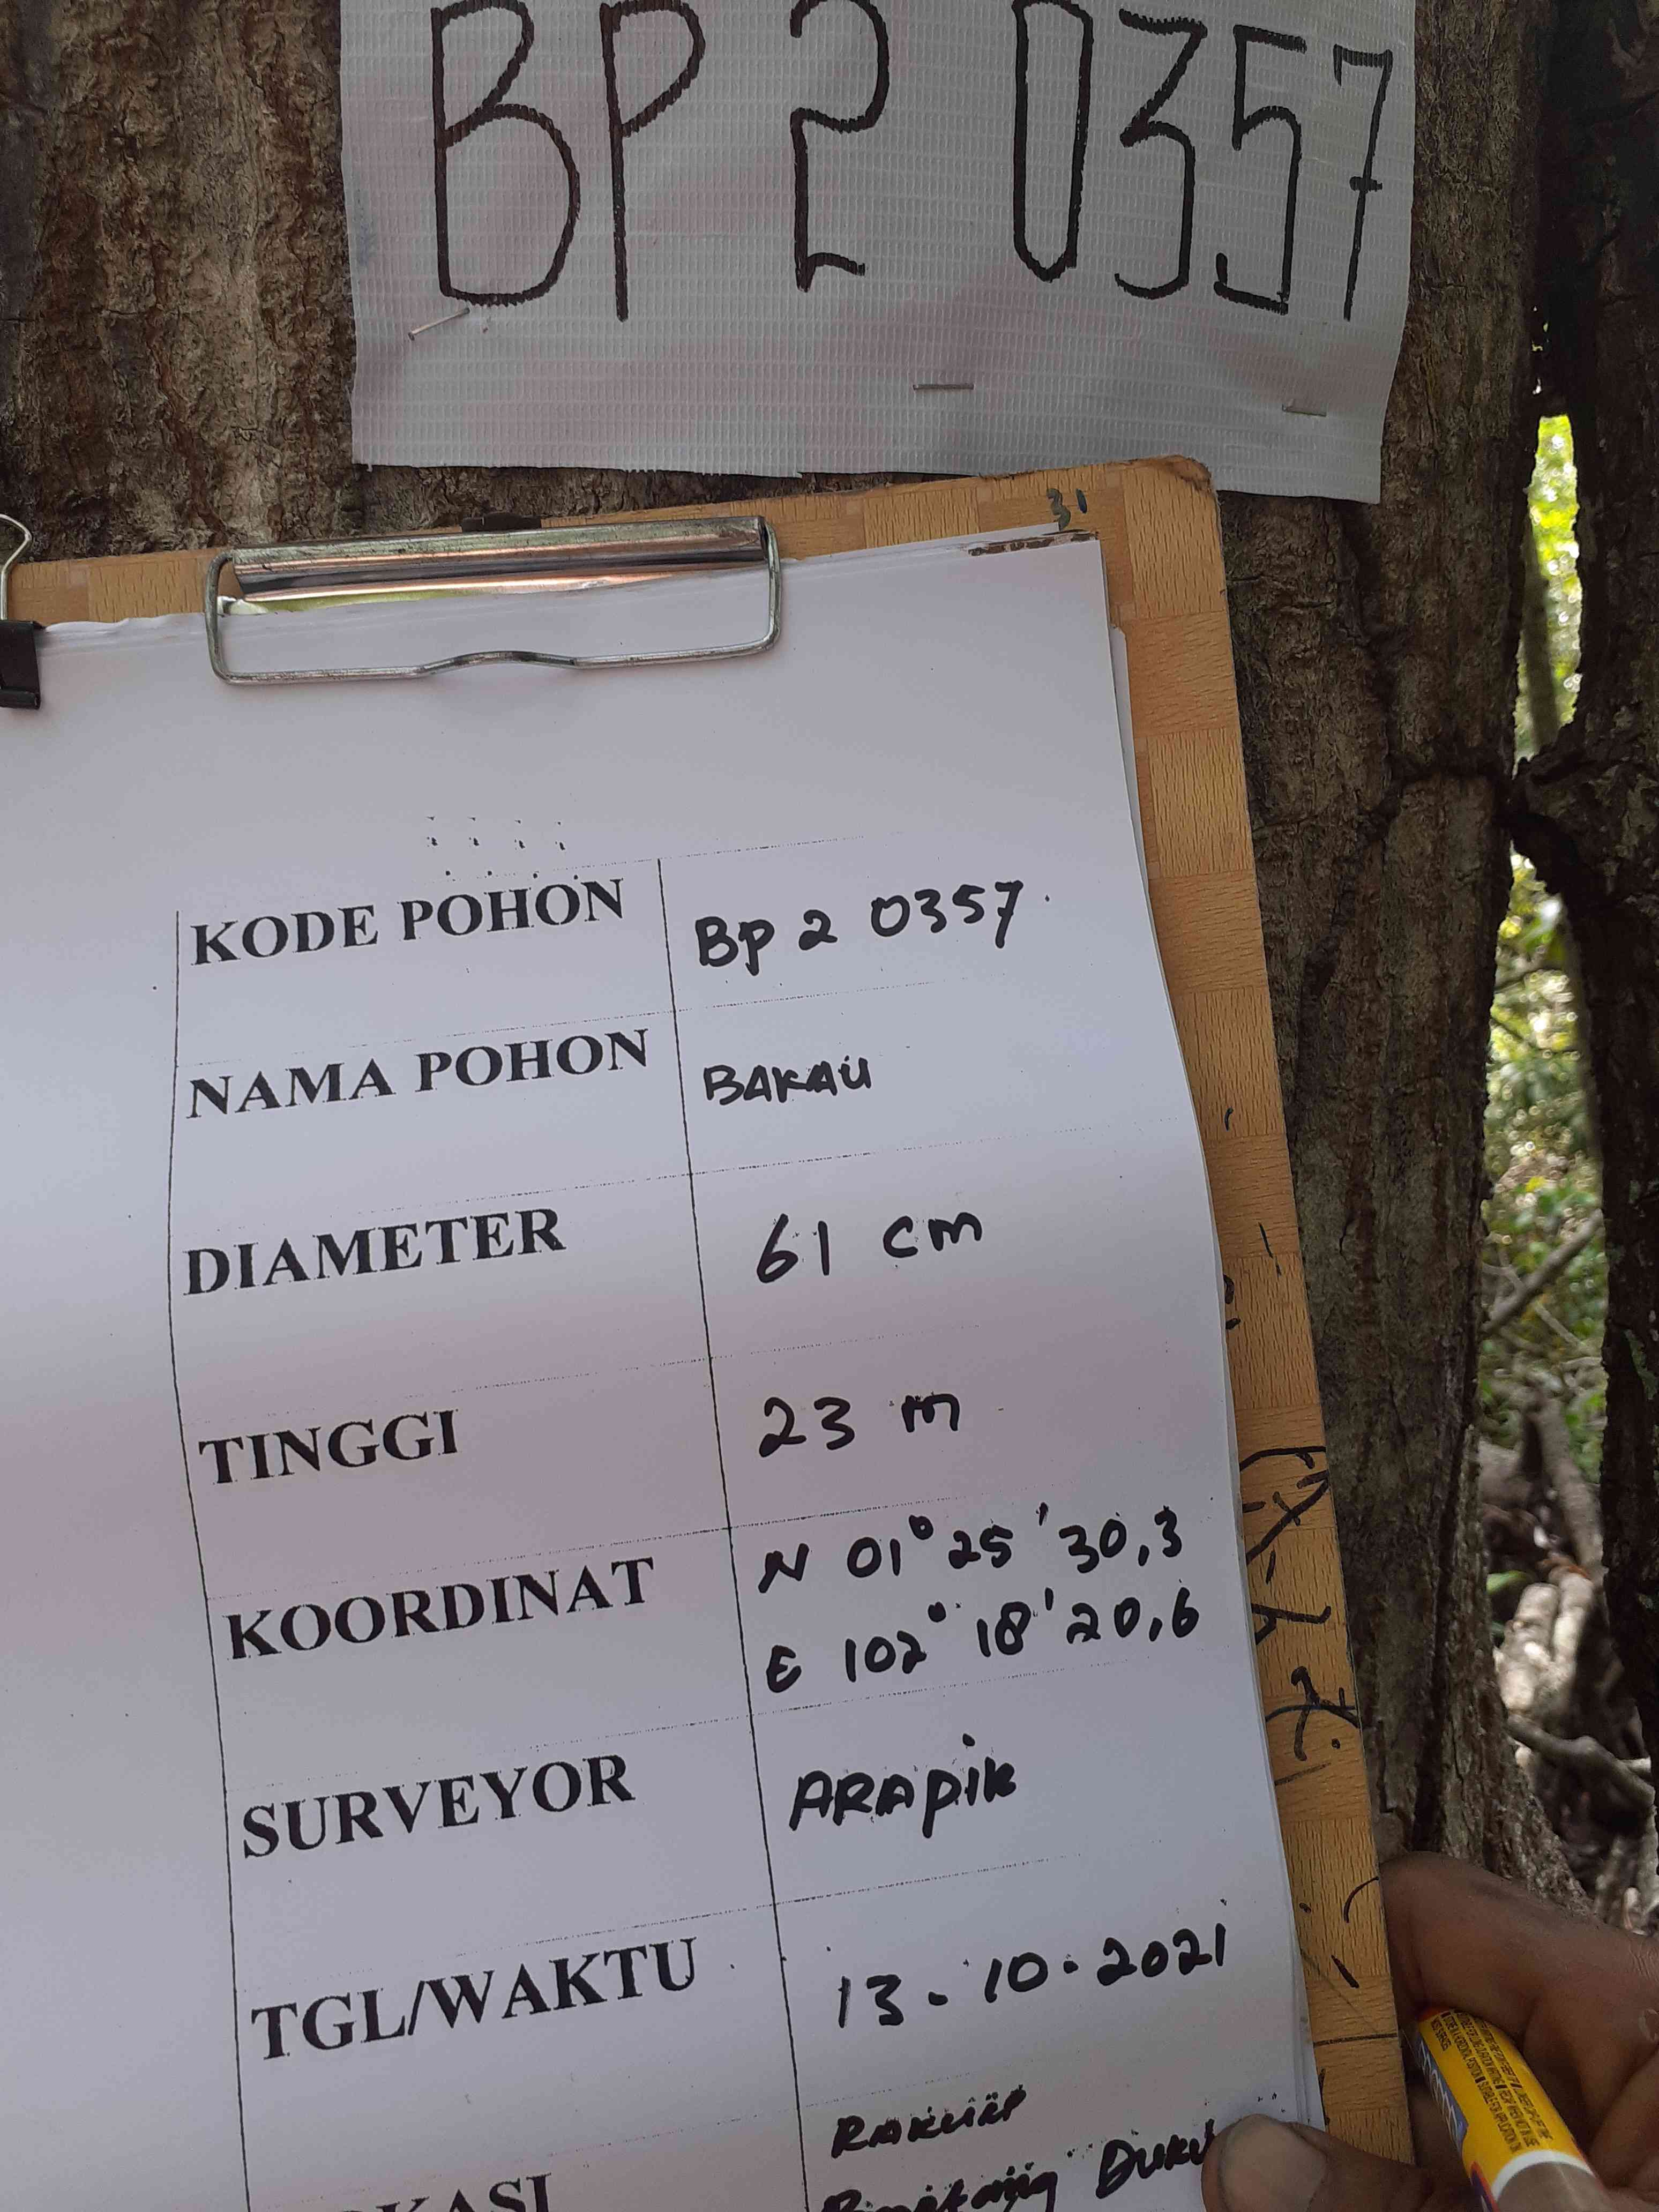 BP 2 0357
31
KODE POHON Bp 2 0357.
NAMA POHON BAKAU
DIAMETER 61 cm
TINGGI 23 m
KOORDINAT N 01° 25 ' 30,3
E 102° 18 ' 20,6
SURVEYOR ARAPIK
TGL/WAKTU 13-10-2021